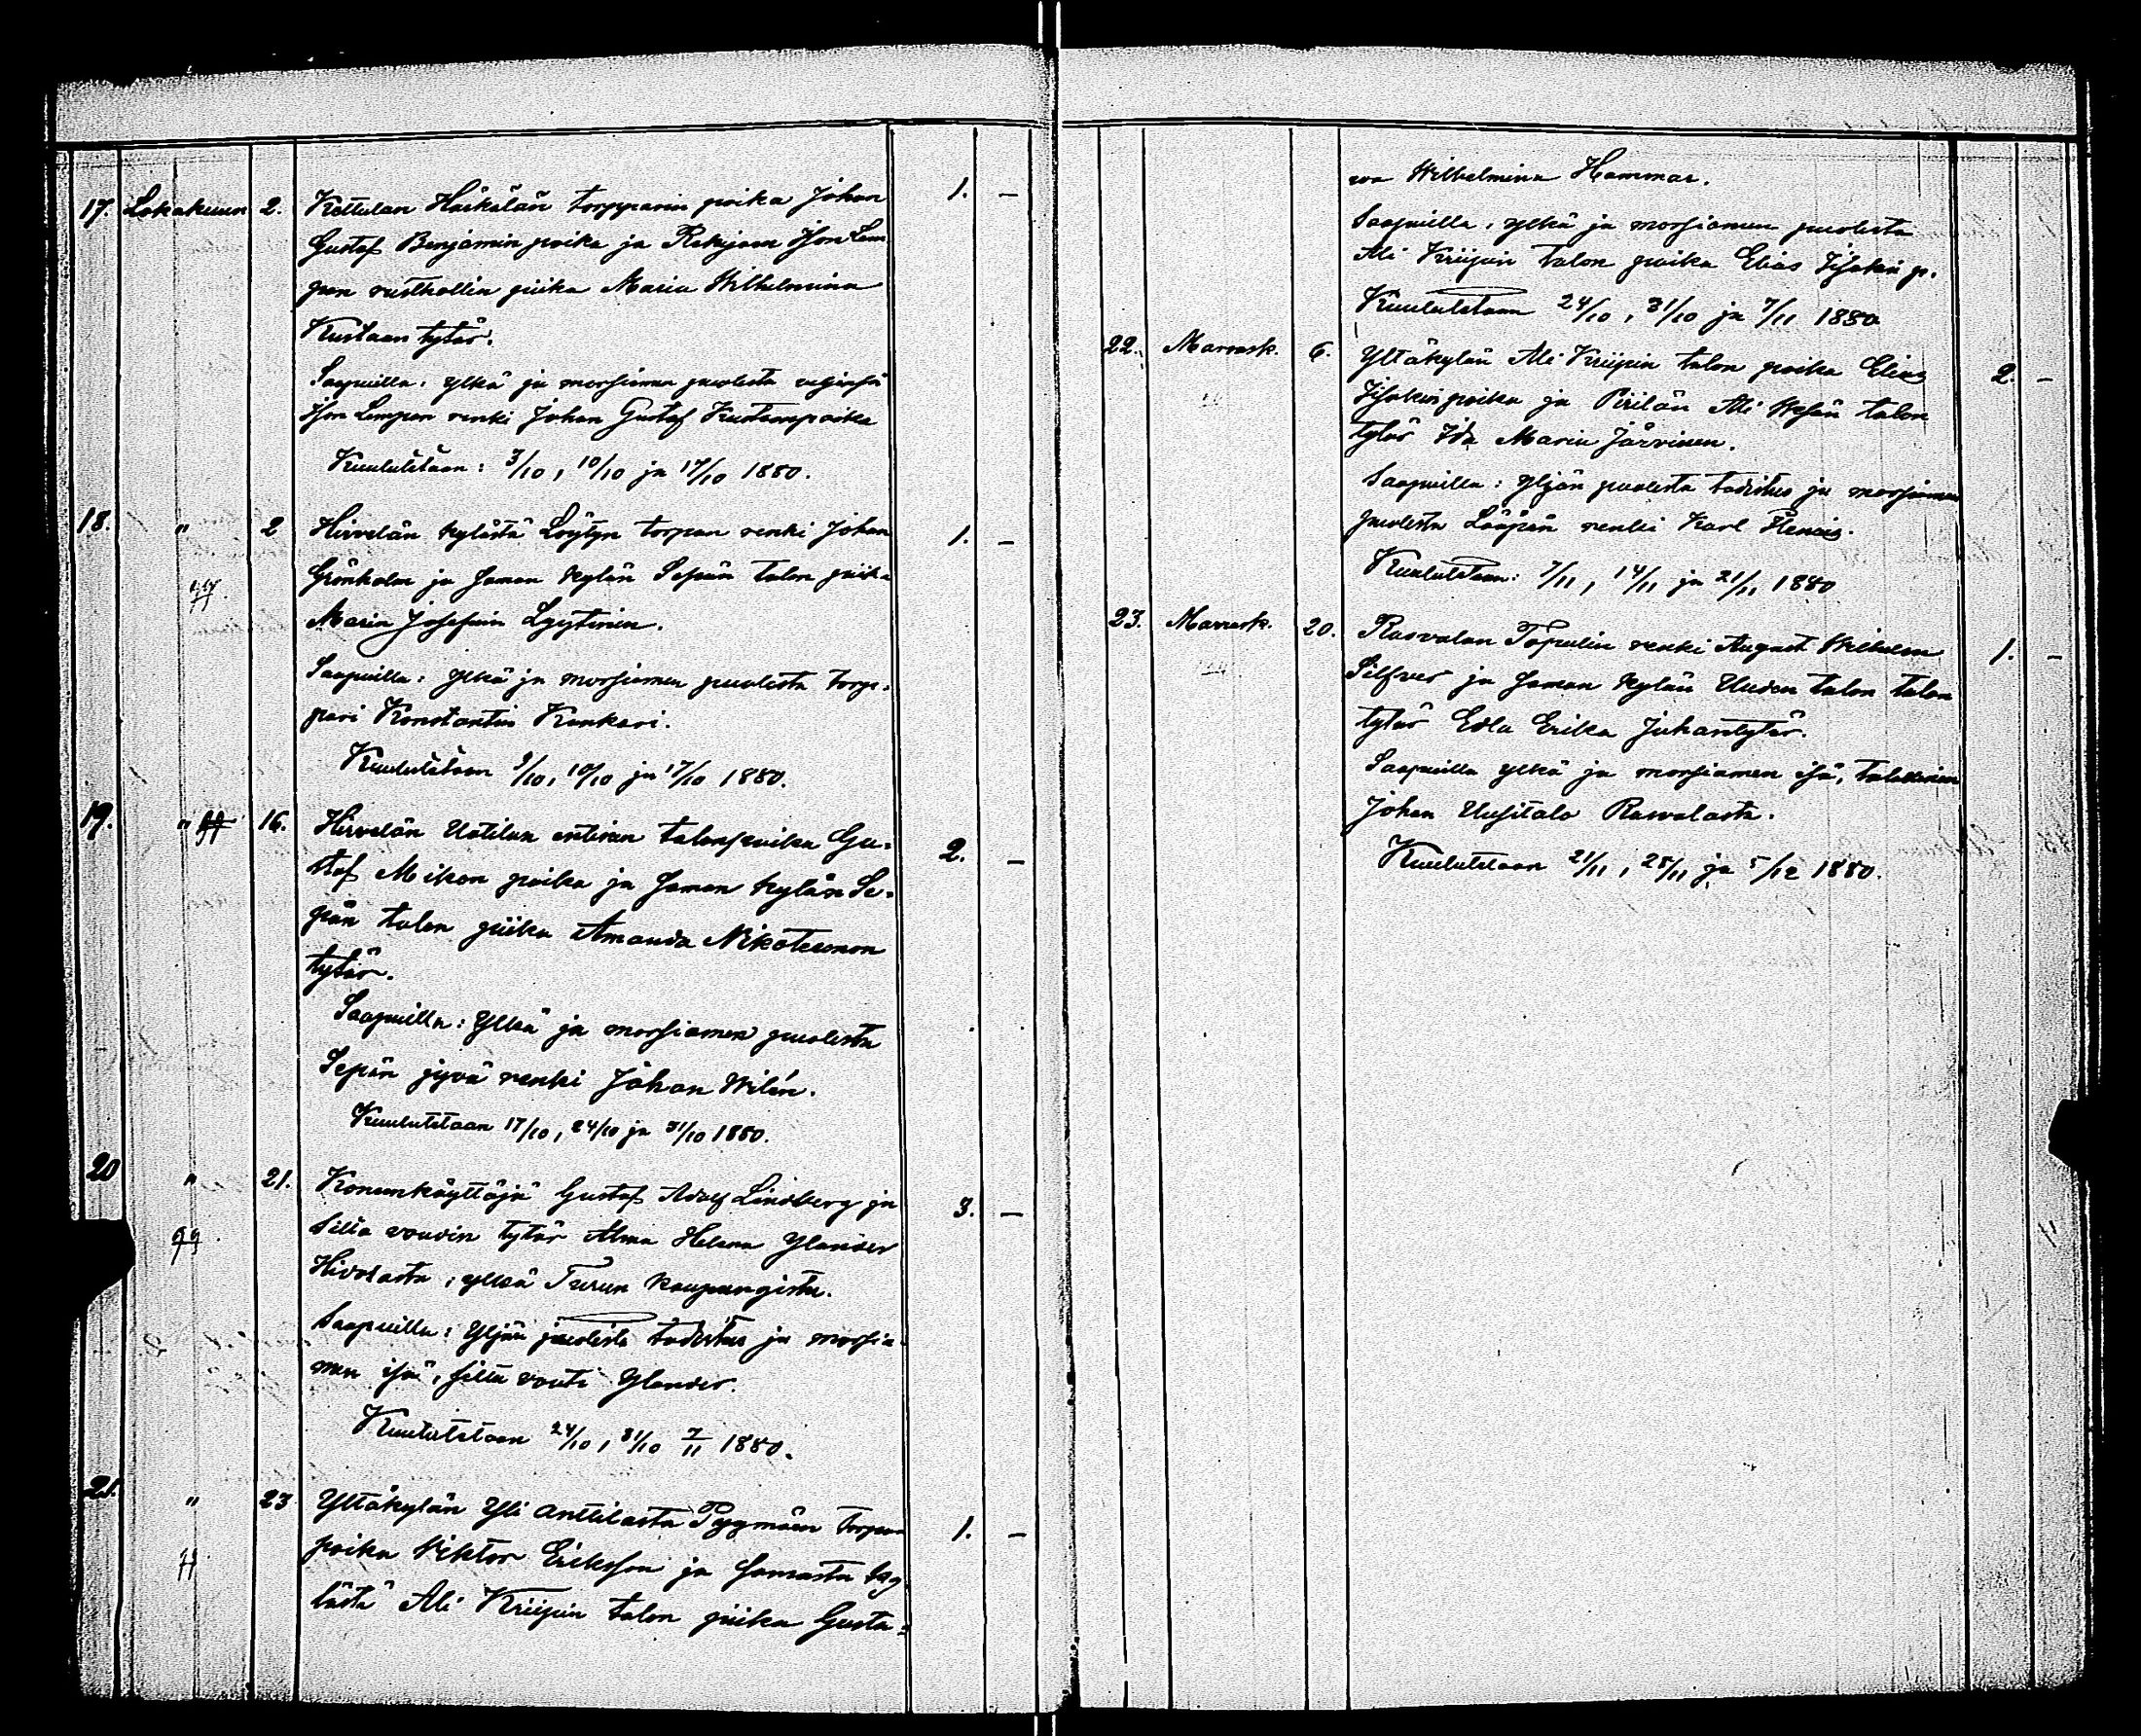 17. Lokakuun 2. Kettulan Härkälän torpparin poika Johan 1. —
Gustaf Benjamin poika ja Rekijoen Ison Lem
pun rusthollin piika Maria Wilhelmina
Kustaan tytär.
Saapuilla: ylkä ja morsiamen puolesta
Ison Lempun renki Johan Gustaf Kustaanpoika
Kuulutetaan: 3/10, 10/10 ja 17/10 1880.
18. " 2 Hirvelän kylästä Löytyn torpan renki Johan 1. —
Grönholm ja saman kylän Sepän talon piika
Maria Josefiin Lyytinen.
Saapuilla: ylkä ja morsiamen puolesta torp-
pari Konstantin Kankari.
Kuulutetaan 3/10, 10/10 ja 17/10 1880.
19. " 16. Hirvelän Uotilan entinen talonpoika Gu- 2. —
staf Mikon poika ja saman kylän Se-
pän talon piika Amanda Nikoteemon
tytär.
Saapuilla: Ylkä ja morsiamen puolesta
Sepän jyvä renki Johan Wilén.
Kuulutetaan 17/10, 24/10 ja 31/10 1880.
20 " 21. Konunkäyttäjä Gustaf Adolf Lindberg ja 3. —
Silta voudin tytär Alma Helena Ylander
99. Hivolasta, ylkä Turun kaupungista.
Saapuilla: Yljän puolesta todistus ja morsia-
men isä, silta vouti Ylander.
Kuulutetaan 24/10, 31/10 7/11 1880.
21. " 23 Yltäkylän Yli Anttilasta Pyymäen torpan 1. —
poika Viktor Eriksson ja samasta ky
lästä Ali Kriipin talon piika Gusta-
va Wilhelmina Hammar.
Saapuilla, ylkä ja morsiamen puolesta
Ali Kriipin talon poika Elias Iisakin p.
Kuulutetaan 24/10, 31/10 ja 7/11 1880
22. Marrask. 6. Yltäkylän Ali Kriipin talon poika Elias 2. —
Iisakin poika ja Pirilän Ali talon
tytär Ida Maria Järvinen.
Saapuilla: Yljän puolesta todistus ja morsiamen
puolesta Lääpän renki Karl
Kuulutetaan: 7/11, 14/11 ja 21/11 1880
23. Marrask. 20. Rasvalan Töpulin renki August Wilhelm 1. —
Silfver ja saman kylän Uuden talon talon
tytär Edla Erika Juhantytär.
Saapuilla ylkä ja morsiamen isä, talollinen
Johan Uusitalo Rasvalasta.
Kuulutetaan 21/11, 28/11 ja 5/12 1880.